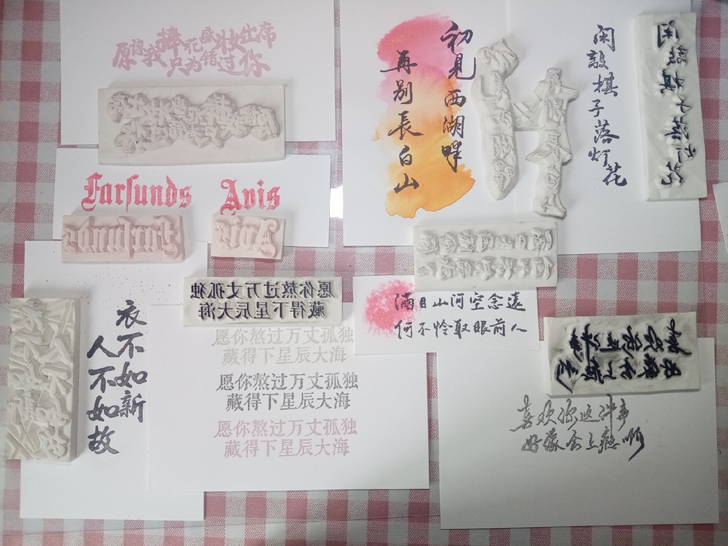 原谅我捧花盛妆出席
只为错过你
初見西湖畔
再别長白山
闲敲棋子落灯花
闲敲棋子落灯花
Farsunds Avis
Farsunds
Avis
衣不如新
人不如故
愿你熬过万丈孤独
藏得下星辰大海
愿你熬过万丈孤独
藏得下星辰大海
愿你熬过万丈孤独
藏得下星辰大海
愿你熬过万丈孤独
藏得下星辰大海
满目山河空念遠
何不怜取眼前人
喜欢你这件事
好像会上瘾啊